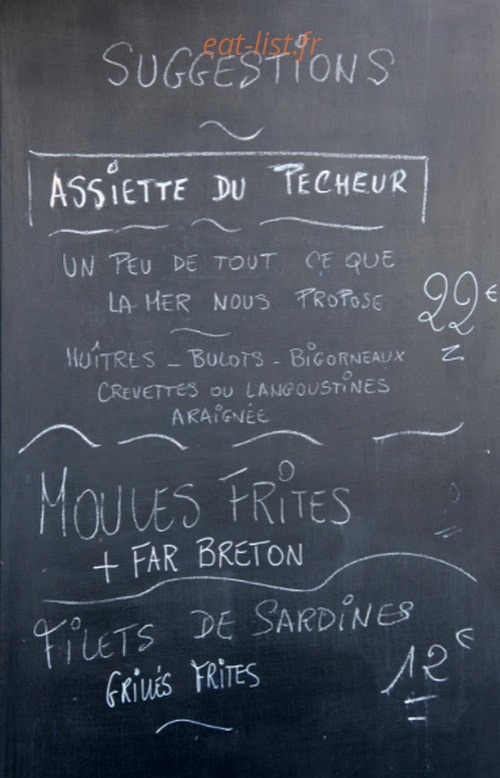 eat-list.fr
SUGGESTIONS
ASSIETTE DU PECHEUR
UN PEU DE TOUT CE QUE
LA MER NOUS PROPOSE
22€
HUÎTRES - BULOTS - BIGORNEAUX
CREVETTES OU LANGOUSTINES
ARAIGNÉE
MOULES FRITES
+ FAR BRETON
FILETS DE SARDINES
GRILLÉS FRITES
12€